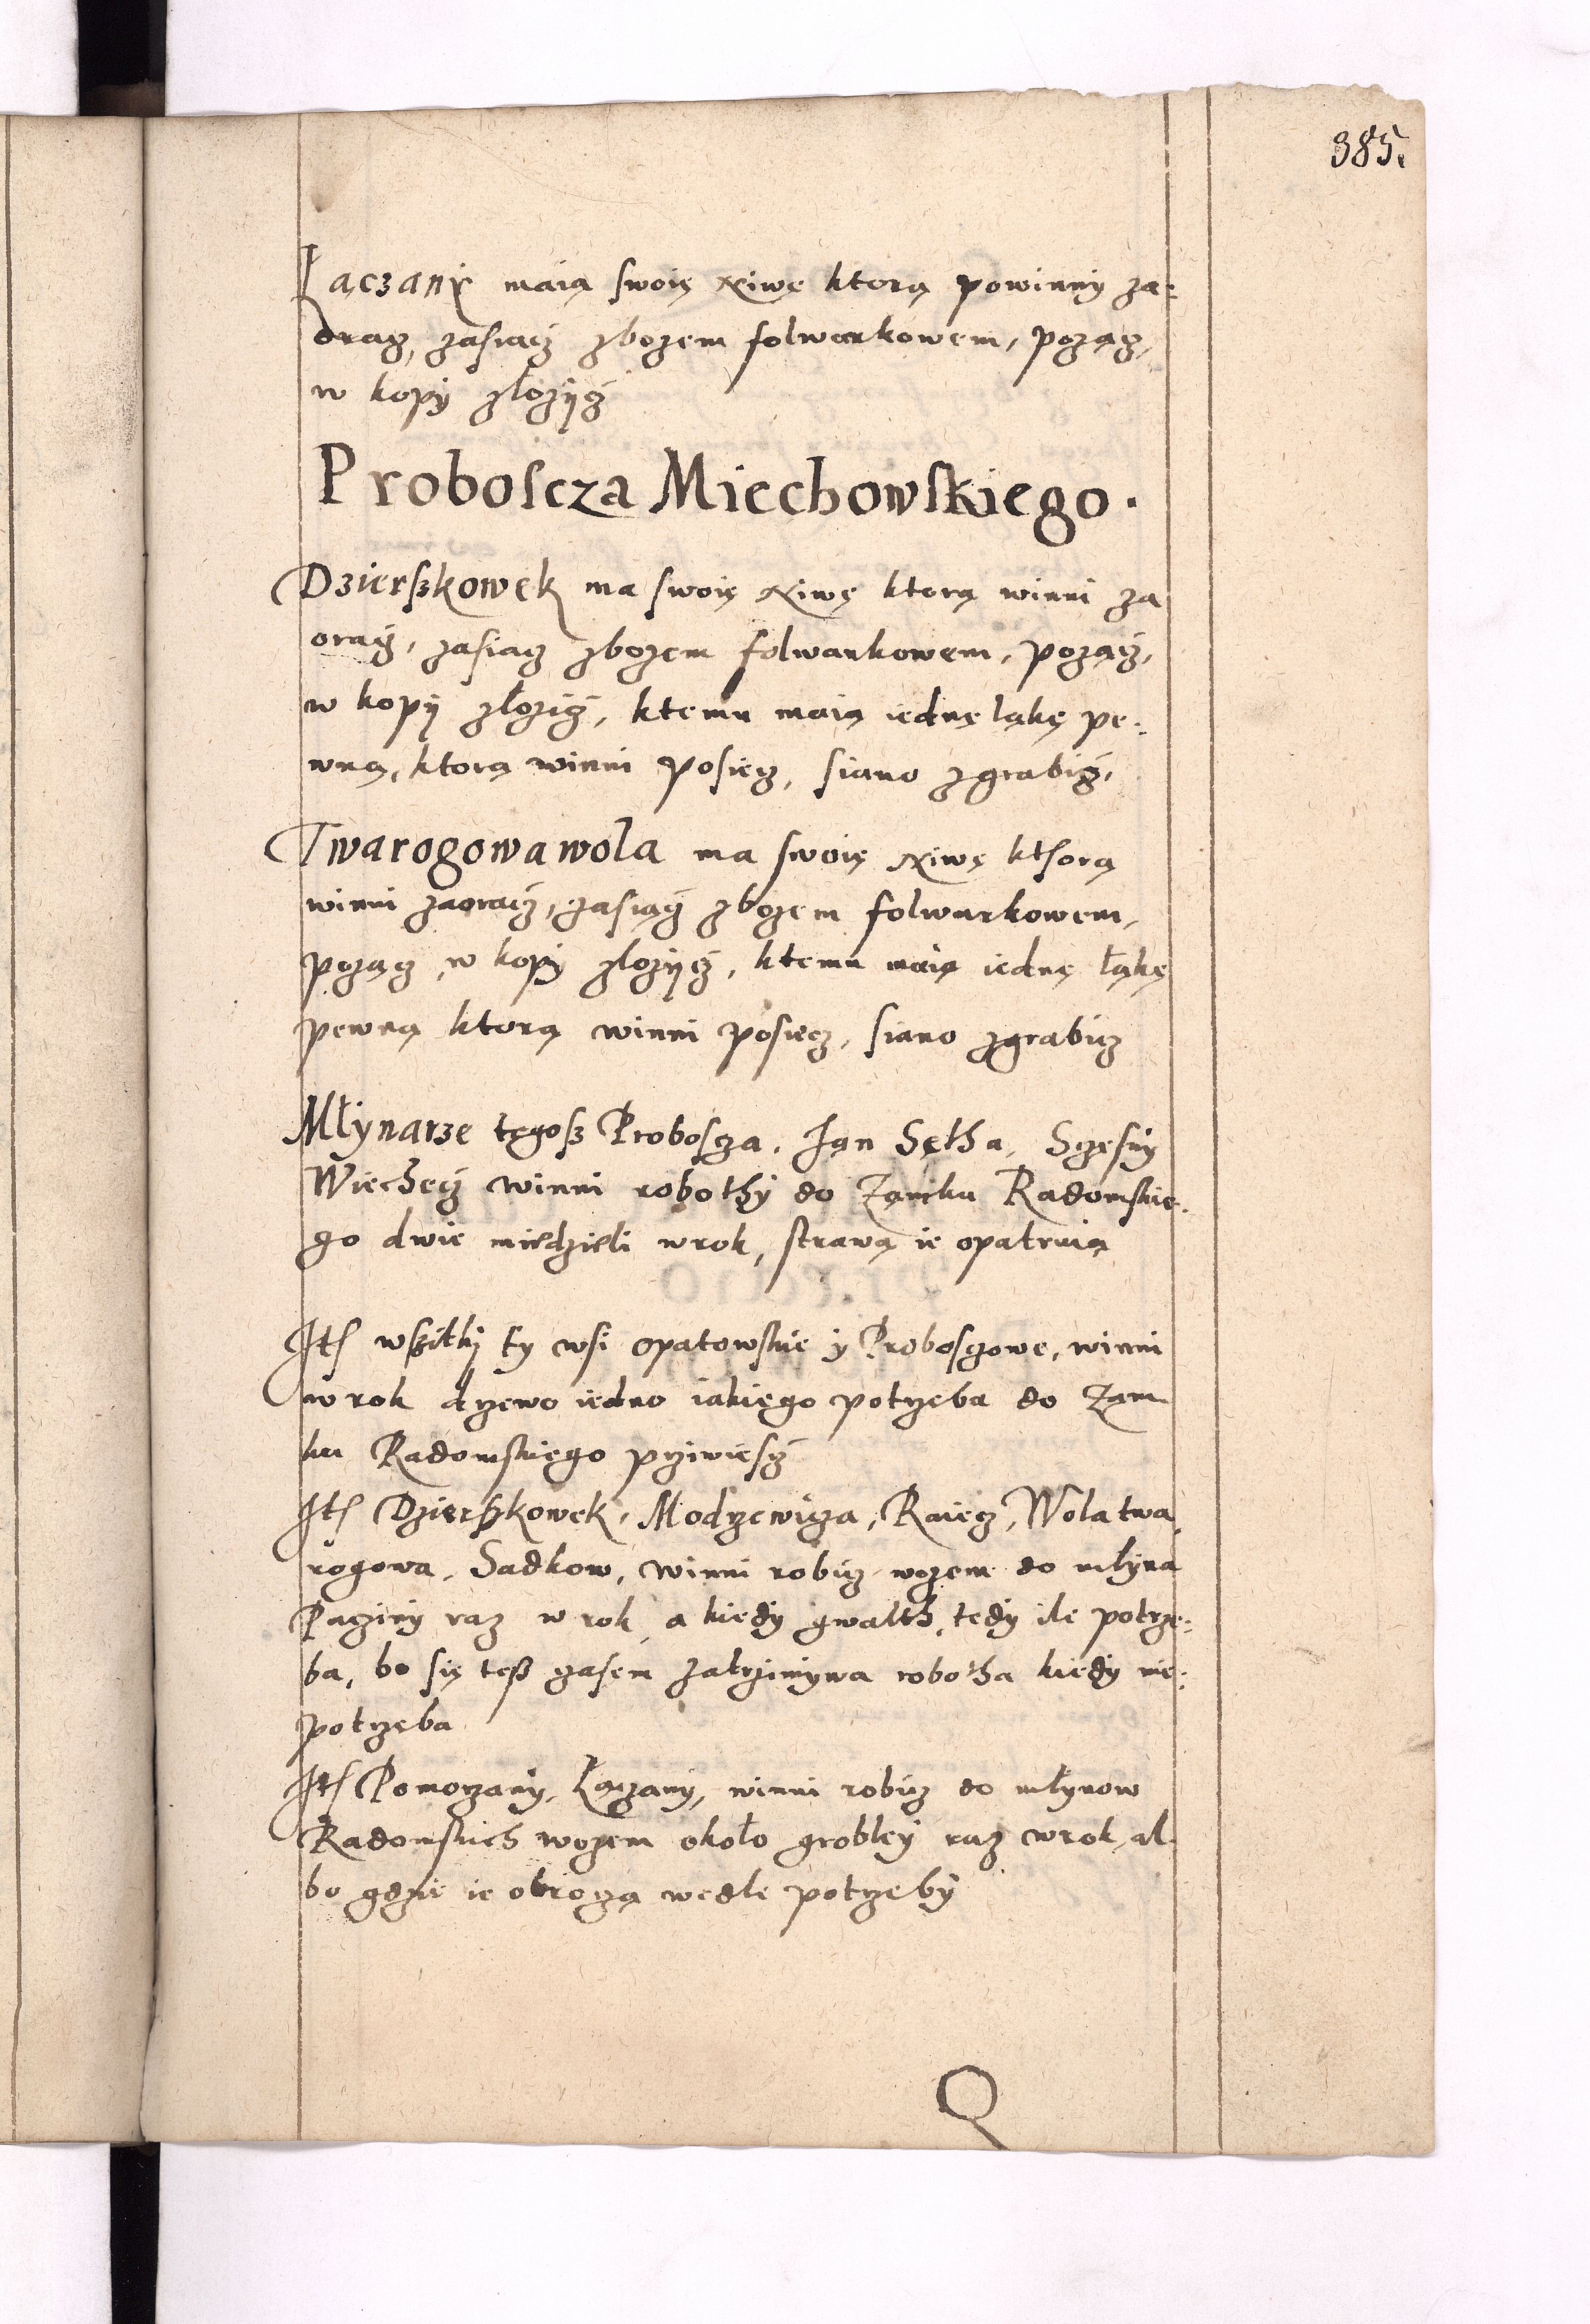 385.
Łączany maią swoię niwę ktorą powinny za-
oracz, zasiacz zbozem folwarkowem, pozącz,
w kopy złozycz
Proboscza Miechowskiego.
Dzierßkowek ma swoię niwę ktorą winni za
oracz, zasiacz zbozem folwarkowem, pozącz,
w kopy złozicz, ktemu maią iednę ląkę pe-
wną, ktorą winni posiecz, siano zgrabicz,
Twarogowa wola ma swoię niwę kthorą
winni zaoracz, zasiącz zbozem folwarkowem,
pozącz, w kopy zlozycz, ktemu maią iednę łąkę
pewną ktorą winni posiecz, siano zgrabicz
Młynarze tegoß Proboscza, Jan Sętha, Sczęsny
Wiechecz winni robothy do Zamku Radomskie-
go dwie niedzieli w rok, strawą ie opatruią
Ith wßitkj ty wsi opatowskie y Proboscowe, winni
w rok drzewo iedno iakiego potrzeba do Zam
ku Radomskiego prziwiescz
Ith Dzierßkowek, Modrzewicza, Raiecz, Wola twa
rogowa, Sadkow, winni robicz wozem do młyna
Pacziny raz w rok, a kiedy gwalth, tedy ile potrze-
ba, bo się teß czasem zatrzimywa robotha kiedy nie-
potrzeba
Ith Pomorzany, Łączany, winni robicz do młynow
Radomskich wozem około grobley raz w rok, al-
bo gdzie ie obroczą wedle potrzeby
Q